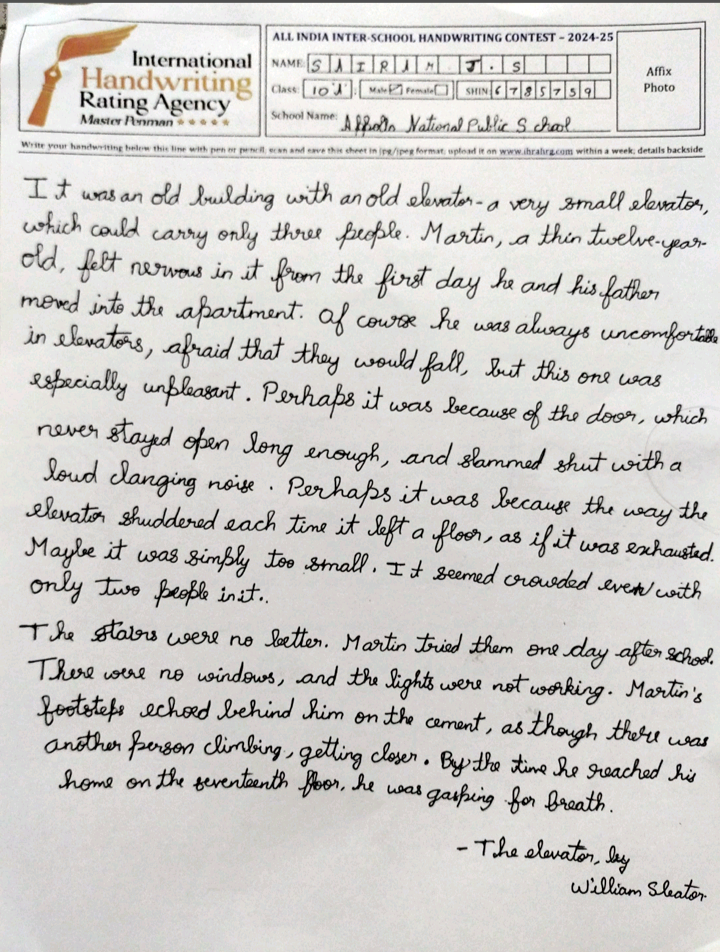 International
Handwriting
Rating Agency
Master Penman
ALL INDIA INTER-SCHOOL HANDWRITING CONTEST - 2024-25
NAME: SAIRAM. J. S
Class: 10 'A' Male Female SHIN: 6785759
School Name: National Public School
Affix
Photo
Write your handwriting below this line with pen or pencil, scan and save this sheet in jpg/jpeg format, upload it on www.ihrahrg.com within a week, details backside
It was an old building with an old elevator-a very small elevator,
which could carry only three people. Martin, a thin twelve-year-
old, felt nervous in it from the first day he and his father
moved into the apartment. Of course he was always uncomfortable
in elevators, afraid that they would fall, but this one was
especially unpleasant. Perhaps it was because of the door, which
never stayed open long enough, and slammed shut with a
loud clanging noise. Perhaps it was because the way the
elevator shuddered each time it left a floor, as if it was exhausted.
Maybe it was simply too small. It seemed crowded even with
only two people in it..
The stairs were no better. Martin tried them one day after school.
There were no windows, and the lights were not working. Martin's
footsteps echoed behind him on the cement, as though there was
another person climbing, getting closer. By the time he reached his
home on the seventeenth floor, he was gasping for breath.
- The elevator, by
William Sleator.